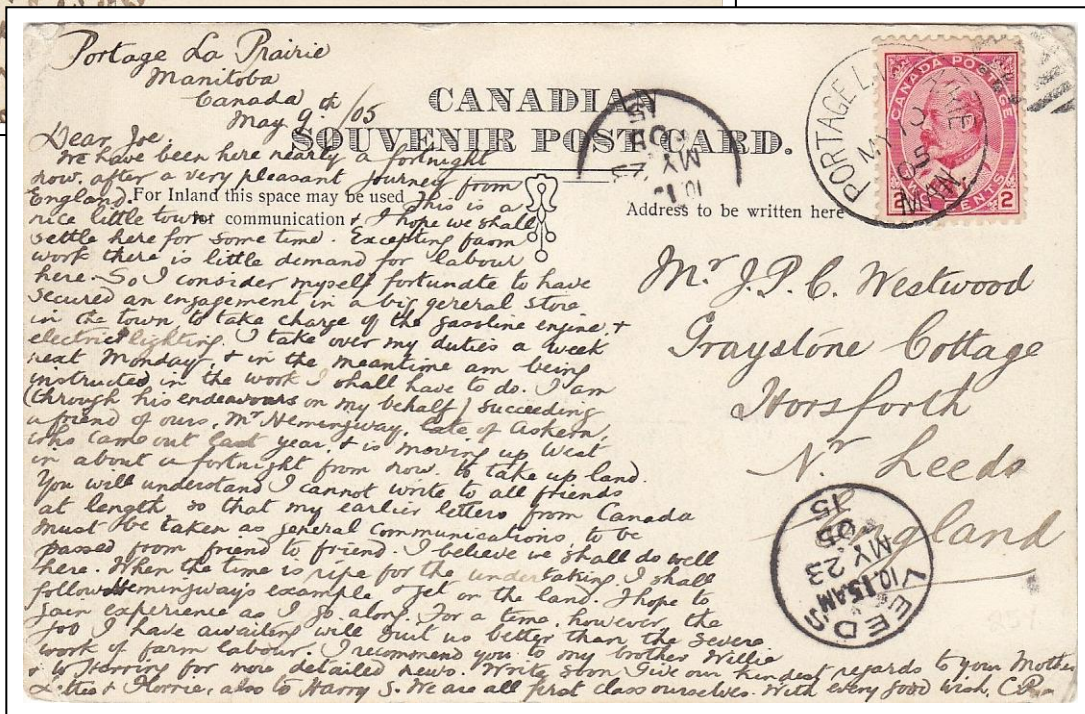 Portage La Prairie
Manitoba
Canada
May 9th /05
CANADIAN
SOUVENIR POST CARD.
Dear Joe,
We have been here nearly a fortnight
now, after a very pleasant journey from
England. This is a
nice little town & I hope we shall
settle here for some time. Excepting farm
work there is little demand for labour
here. So I consider myself fortunate to have
secured an engagement in a big general store
in the town to take charge of the gasoline engine &
electric lighting. I take over my duties a week
next Monday, & in the meantime am being
instructed in the work I shall have to do. I am
(through his endeavours on my behalf) succeeding
a friend of ours, Mr Hemingway, late of Askern,
who came out last year & is moving up West
in about a fortnight from now to take up land.
You will understand I cannot write to all friends
at length so that my earlier letters from Canada
must be taken as general communications, to be
passed from friend to friend. I believe we shall do well
here. When the time is ripe for the undertaking I shall
follow Hemingway's example & get on the land. I hope to
gain experience as I go along. For a time, however, the
job I have awaiting will suit us better than the severe
work of farm labour. I recommend you to my brother Willie
& W Horring for more detailed news. Write soon Give our kindest regards to your Mother
& Florrie, also to Harry S. We are all first class ourselves. With every good wish,
For Inland this space may be used
for communication
Address to be written here
Mr J.P.C. Westwood
Graystone Cottage
Horsforth
Nr Leeds
England
CANADA POSTAGE
2 CENTS 2
PORTAGE LA PRAIRIE
MY 10
05
MAN.
MY
05
15
LEEDS
10.15AM
MY 23
05
15